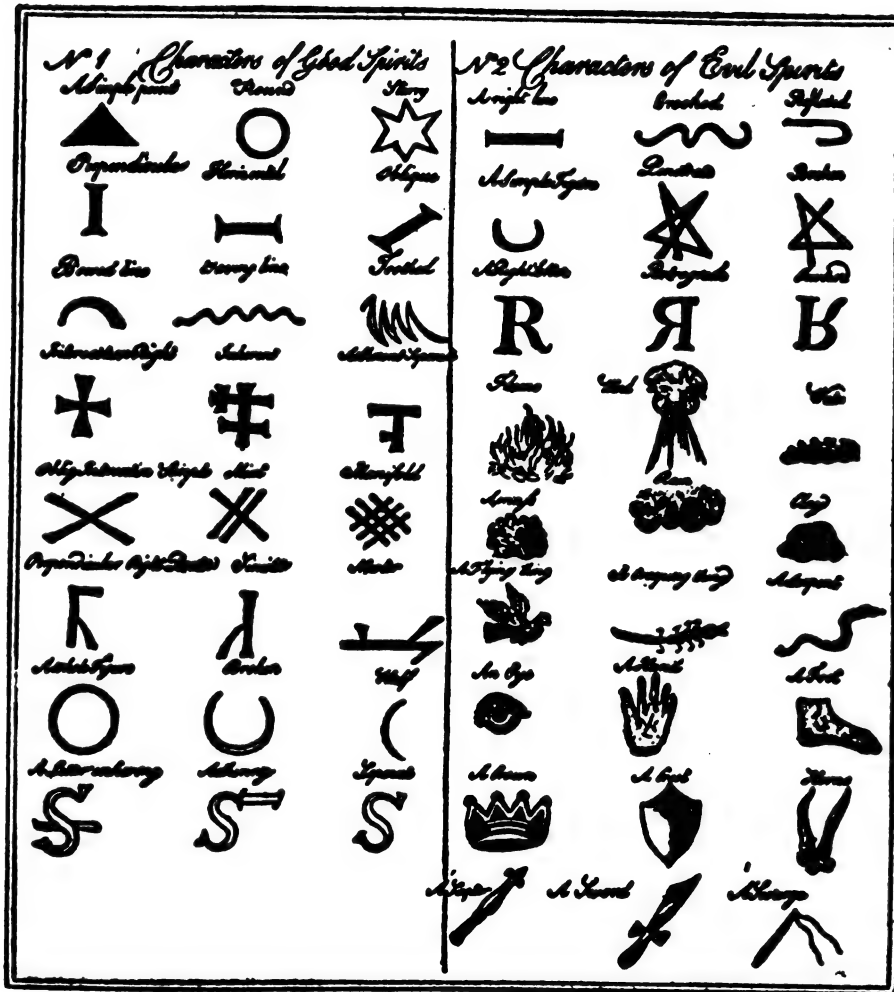 Nº 1 Characters of Good Spirits
A Simple point Round Starry
Perpendicular Horizontal Oblique
Bowed line Waving line Toothed
Intersection Right Inherent Adherent Separate
Obliq Intersection Simple Mixt Manifold
Perpendicular Right Dexter Sinister Neuter
A whole Figure Broken Half
A Letter inhering Adhering Separate
Nº 2 Characters of Evil Spirits
A right line Crooked Reflexed
A Simple Figure Penetrate Broken
A Right letter Retrograde
R R R
Flame Wind Water
A mass Rain Clay
A Flying thing A Creeping thing A Serpent
An Eye A Hand A Foot
A Crown A Crest Horns
A Scepter A Sword A Scourge